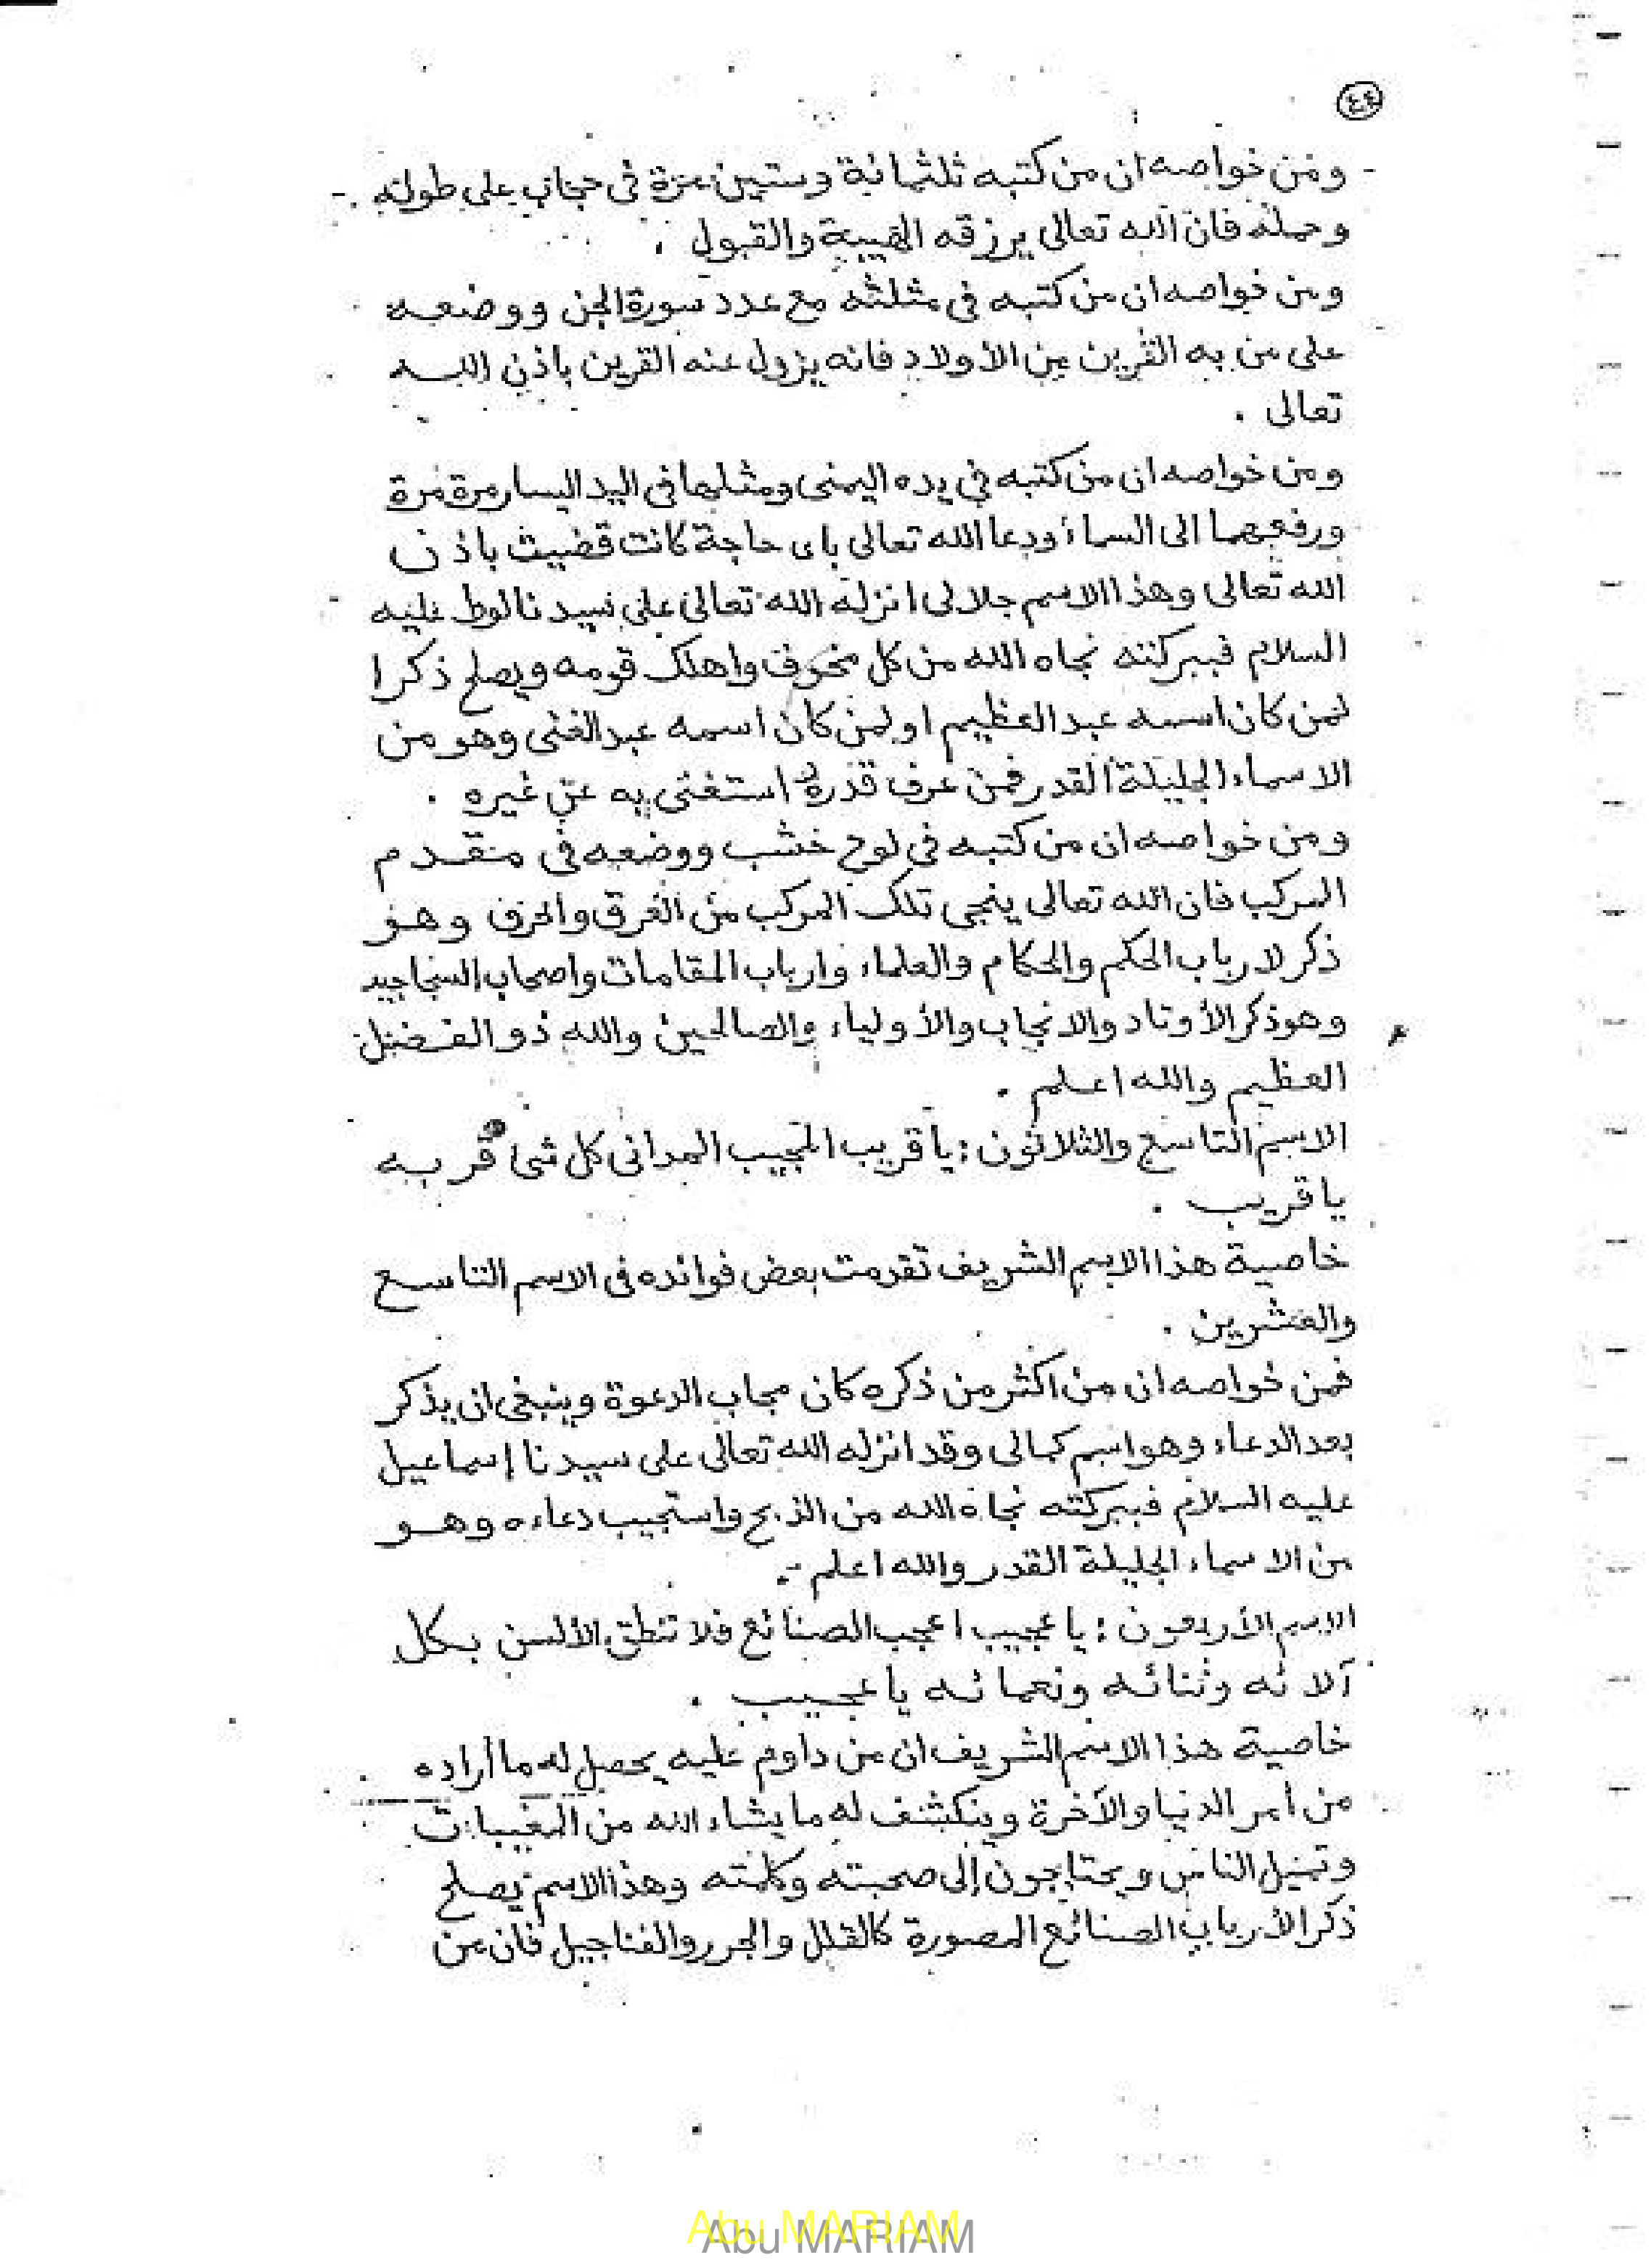 ٤٤
ومن خواصه ان من كتبه ثلثمائة وستين مرة في حجاب على طوله
وحمله فان الله تعالى يرزقه الهيبة والقبول .
ومن خواصه ان من كتبه في مثلثه مع عدد سورة الجن ووضعه
على من به القرين من الأولاد فانه يزول عنه القرين باذن الله
تعالى .
ومن خواصه ان من كتبه في يده اليمنى ومثلها في اليد اليسار مرة مرة
ورفعهما الى السماء ودعا الله تعالى باى حاجة كانت قضيت باذن
الله تعالى وهذا الاسم جلالى انزله الله تعالى على سيدنا لوط عليه
السلام فببركته نجاه الله من كل مخوف واهلك قومه ويصلح ذكرا
لمن كان اسمه عبد العظيم او لمن كان اسمه عبد الغنى وهو من
الاسماء الجليلة القدر فمن عرف قدره استغنى به عن غيره .
ومن خواصه ان من كتبه في لوح خشب ووضعه في مقدم
المركب فان الله تعالى ينجى تلك المركب من الغرق والحرق وهو
ذكر لارباب الحكم والحكام والعلماء وارباب المقامات واصحاب السجاجيد
وهو ذكر الأوتاد والانجاب والأولياء والصالحين والله ذو الفضل
العظيم والله اعلم .
الاسم التاسع والثلاثون : يا قريب المجيب المدانى كل شئ قربه
يا قريب .
خاصية هذا الاسم الشريف تقدمت بعض فوائده فى الاسم التاسع
والعشرين .
فمن خواصه ان من اكثر من ذكره كان مجاب الدعوة وينبغى ان يذكر
بعد الدعاء وهو اسم كمالى وقد انزله الله تعالى على سيدنا إسماعيل
عليه السلام فببركته نجاه الله من الذبح واستجيب دعاءه وهو
من الاسماء الجليلة القدر والله اعلم .
الاسم الأربعون : يا عجيب اعجب الصنائع فلا تنطق الألسن بكل
آلائه وثنائه ونعمائه يا عجيب .
خاصية هذا الاسم الشريف ان من داوم عليه يحصل له ما أراده
من أمر الدنيا والآخرة وينكشف له ما يشاء الله من المغيبات
وتميل الناس ويحتاجون إلى صحبته وكلمته وهذا الاسم يصلح
ذكرا لأرباب الصنائع المصورة كالقلل والجرر والفناجيل فان من
Abu MARIAM